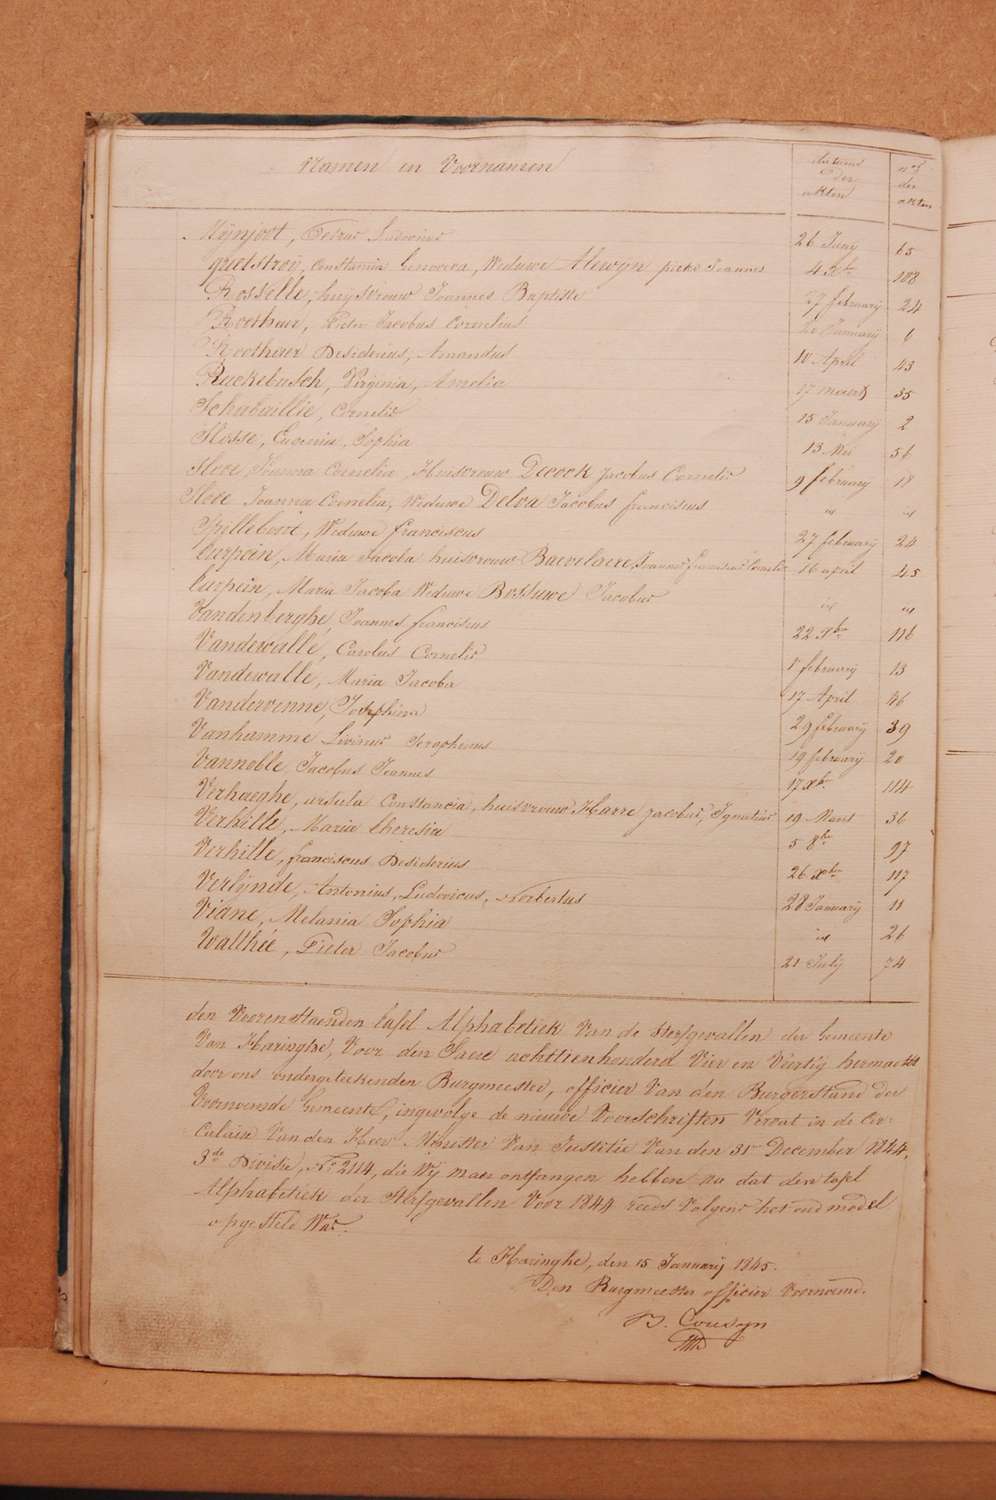 Namen en Voornamen datums der akten nos der akten
Meynjoot, Petrus Ludovicus 26 Juny 65
Constantia Genoveva, Weduwe Alewyn pieter Joannes 4 Xbr 108
Rosselle, huysvrouw Joannes Baptiste 27 february 24
Roethaer, Pieter Jacobus Cornelius 20 January 6
Roethaer Desiderius, Amandus 10 April 43
Ruckebusch, Virginia, Amelia 17 Maerts 35
Schabaillie, Cornelis 15 January 2
Slosse, Eugenia, Sophia 13 Mei 56
Sloee, Joanna Cornelia, Huisvrouw Decock jacobus Cornelis 9 february 18
Sloee Joanna Cornelia, Weduwe Delva Jacobus franciscus id id
Spillebout, Weduwe franciscus 27 february 24
Turpein, Maria Jacoba huisvrouw Baevelaere, Joannes franciscus Cornelis 16 april 45
Turpein, Maria Jacoba Weduwe Bossuwe Jacobus id id
Vandenberghe, Joannes franciscus 22 Xbr 116
Vandewalle, Carolus Cornelis 1 february 13
Vandewalle, Maria Jacoba 17 April 46
Vandervenne, Josephina 29 february 39
Vanhamme Livinus Seraphinus 19 february 20
Vannoble, Jacobus Joannes 17 Xbr. 114
Verhaeghe, ursula Constancia, huisvrouw Harre jacobus, Ignatius 19 Maert 36
Verhille, Maria theresia 5 8bre 97
Verhille, franciscus Desiderius 26 Xbre 117
Verlynde, Antonius, Ludovicus, Norbertus 28 January 11
Viane, Melania Sophia id 26
Walthée, Pieter Jacobus 21 July 74
den Voorenstaenden tafel Alphabetiek Van de Sterfgevallen der Gemeente
Van Haringhe, Voor den Jaere achttienhonderd Vier en Veertig hermaekt
door ons ondergeteekenden Burgmeester, officier Van den Burgerstand der
Voornoemde Gemeente, ingevolge de nieuwe Voorschriften Vervat in de Cir-
culaire Van den Heer Minister Van Justitie Van den 31 December 1844,
3de Divisie, No 2114, die Wij maer ontfangen hebben na dat den tafel
Alphabetiek der Sterfgevallen Voor 1844 reeds Volgens het oud model
opgesteld Was.
te Haringhe, den 15 January 1845.
Den Burgmeester officier Voornoemd.
B. Cousyn